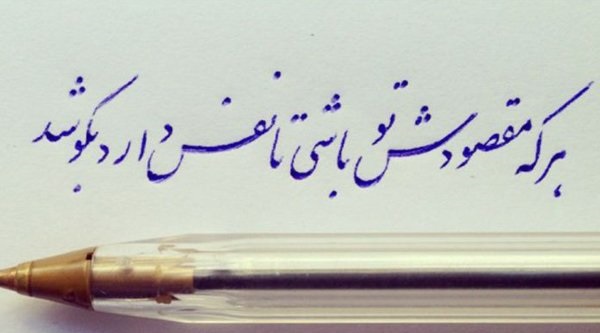 هرکه مقصودش تو باشی تا نفس دارد بکوشد